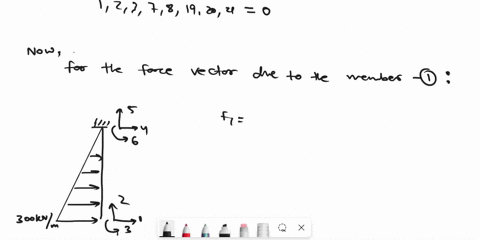 1, 2, 3, 7, 8, 19, 20, 21 = 0
Now,
for the force vector due to the member - ① :
5
4
6
F₁ =
2
300kN/m
1
3